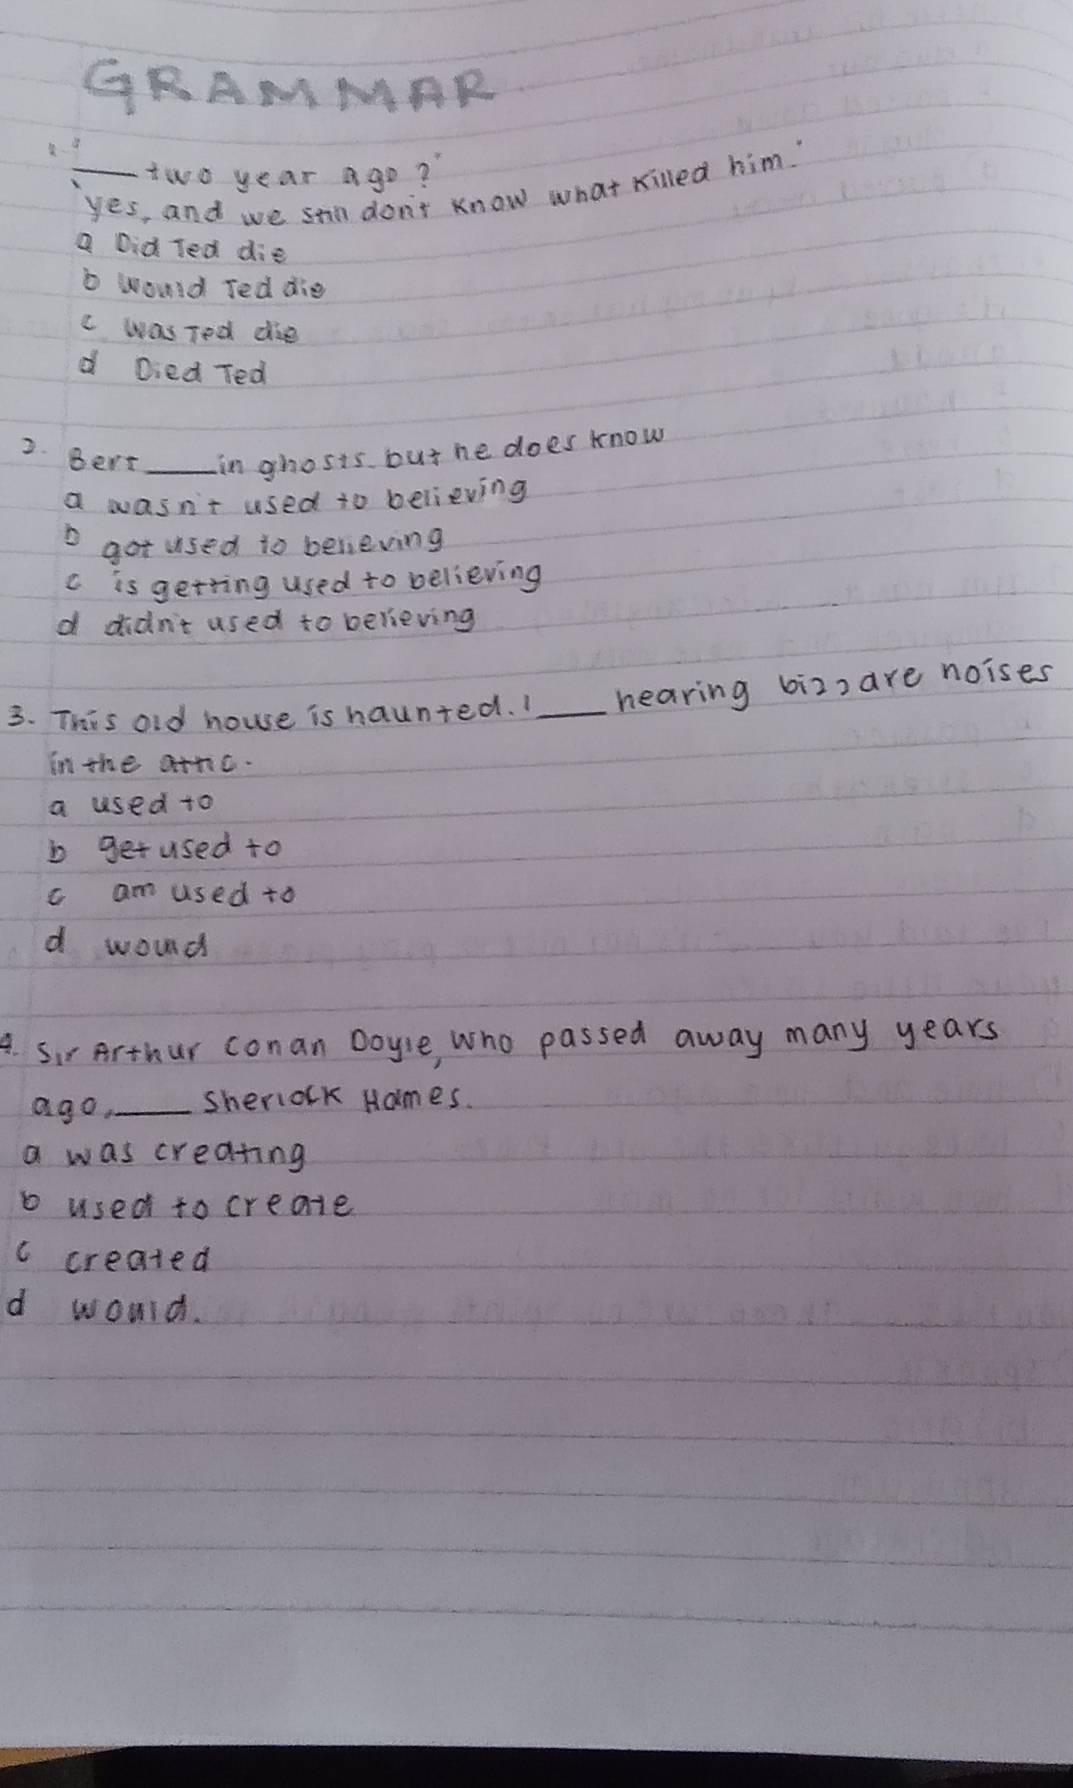 GRAMMAR
"___ two year ago?"
"yes, and we still don't know what killed him."
a Did Ted die
b would Ted die
c was Ted die
d Died Ted
2. Bert ___ in ghosts. but he does know
a wasn't used to believing
b got used to believing
c is getting used to believing
d didn't used to believing
3. This old house is haunted. I ___ hearing bizzare noises
in the attic.
a used to
b get used to
c am used to
d would
4. Sir Arthur Conan Doyle, who passed away many years
ago, ___ Sherlock Holmes.
a was creating
b used to create
c created
d would.